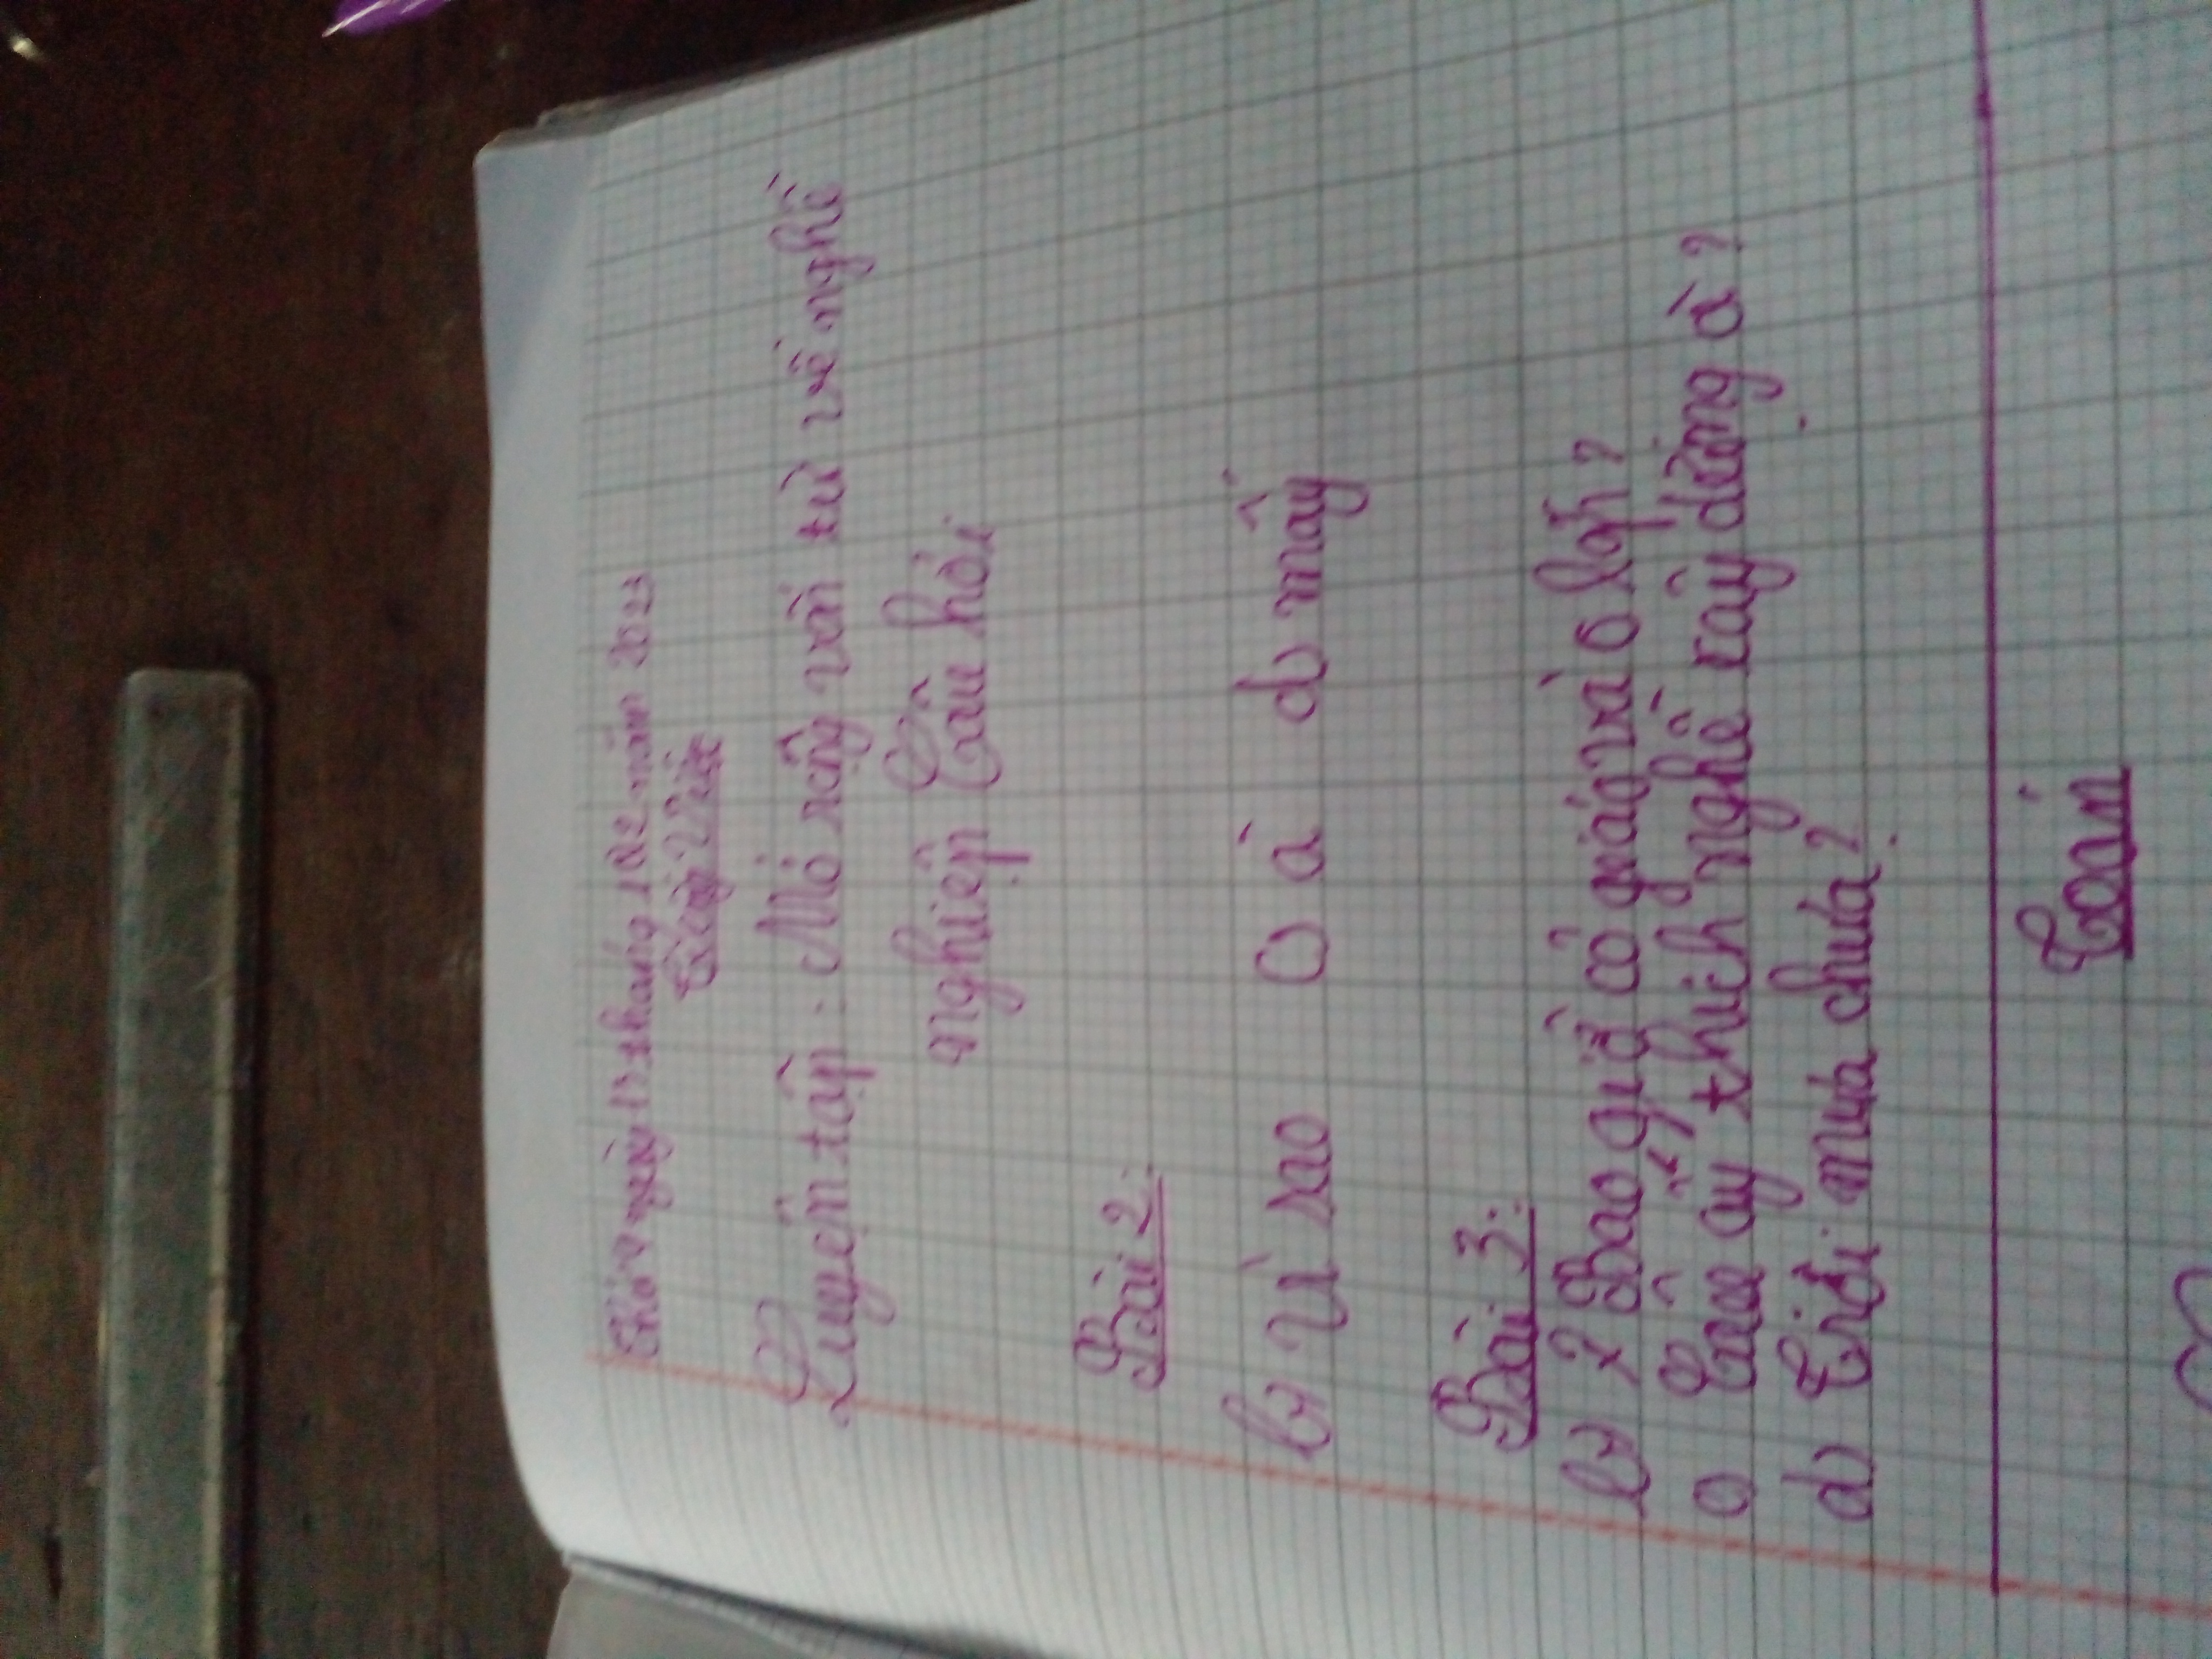 ngày 13 tháng 12 năm 2023
Tiếng Việt
Luyện tập : Mở rộng vốn từ về nghề
nghiệp Câu hỏi
Bài 2:
b, vì sao c, à d, mấy
Bài 3:
b, Bao giờ cô giáo vào lớp ?
c, Cậu ấy thích nghề xây dựng à ?
d, Trời mưa chưa ?
Toán